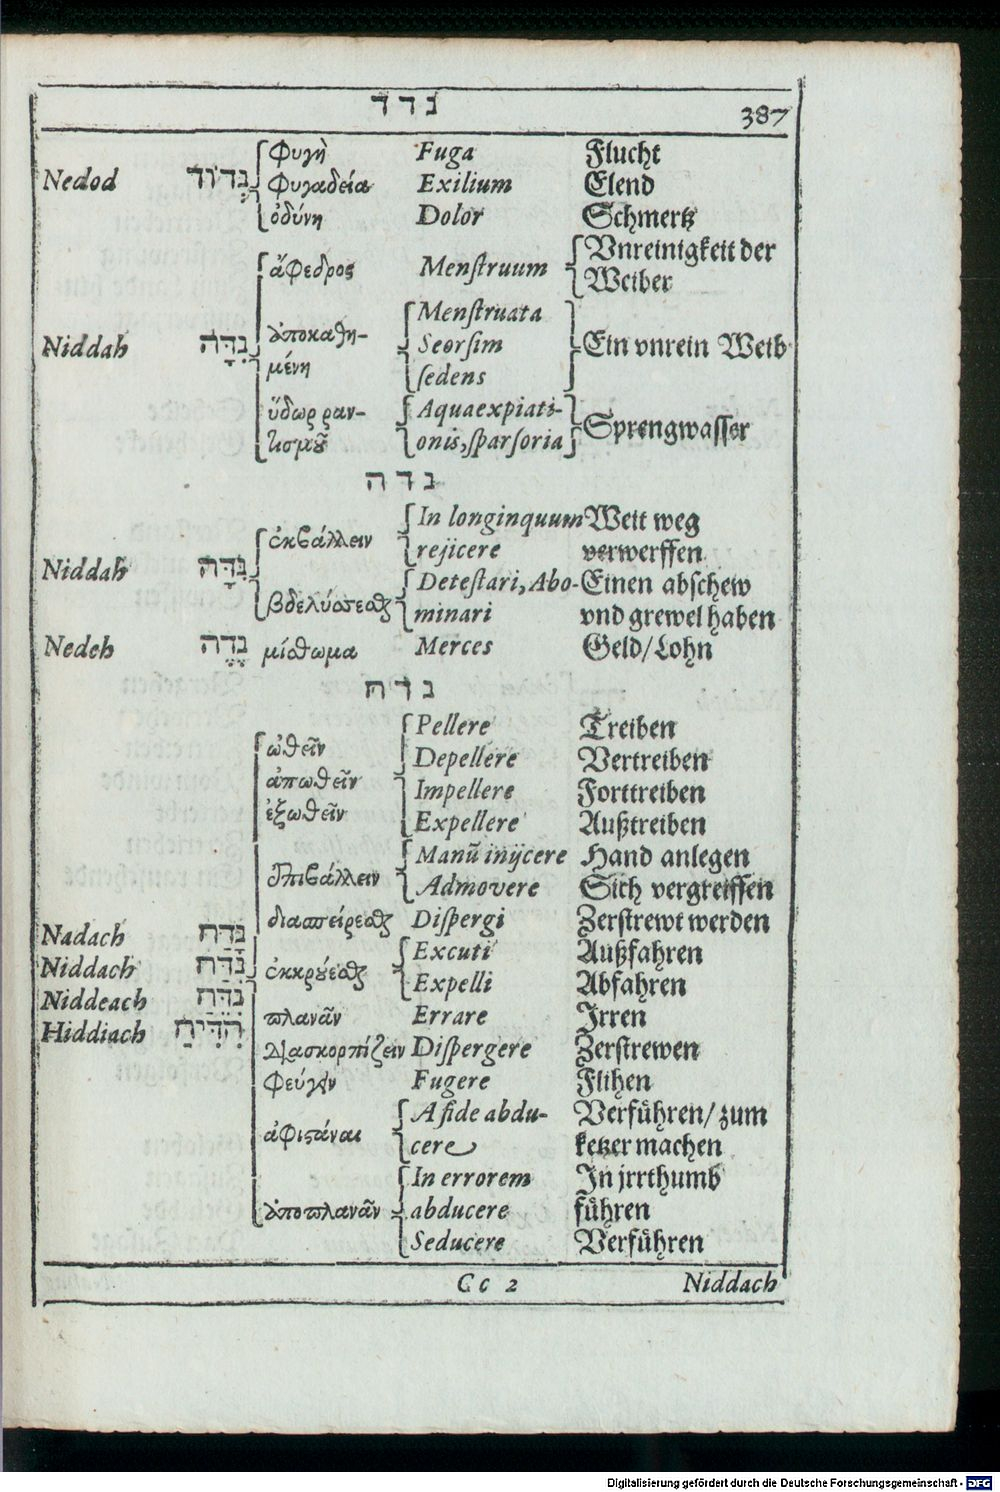 נדד 387
Φυγὴ Fuga Flucht
Nedod נְדוֹד Φυγαδεία Exilium Elend
ὀδύνη Dolor Schmertz
Vnreinigkeit der
ἄφεδρος Menſtruum
Weiber
Menſtruata
ἀποκαθη-
Niddah נִדָּה Seorſim Ein vnrein Weib
μένη
ſedens
ὕδωρ ραν- Aquaexpiati-
Sprengwaſſer
τισμοῦ onis, ſparſoria
נדה
In longinquum Weit weg
ἐκβάλλειν
rejicere verwerffen
Niddah נִדָּה
Deteſtari, Abo- Einen abſchew
βδελύσσεσθαι
minari vnd grewel haben
Nedeh נֶדֶה μίσθωμα Merces Geld/Lohn
נדח
Pellere Treiben
ὠθεῖν
Depellere Vertreiben
ἀπωθεῖν Impellere Forttreiben
ἐξωθεῖν Expellere Außtreiben
Manū inijcere Hand anlegen
ἐπιβάλλειν
Admovere Sich vergreiffen
διασπείρεσθαι Diſpergi Zerſtrewt werden
Nadach נָדַח
Excuti Außfahren
Niddach נִדַּח ἐκκρούεσθαι
Expelli Abfahren
Niddeach נִדֵּחַ
πλανᾶν Errare Irren
Hiddiach הִדִּיחַ
διασκορπίζειν Diſpergere Zerſtrewen
Φεύγειν Fugere Flihen
A fide abdu- Verführen/ zum
ἀφιστάναι
cere ketzer machen
In errorem In jrrthumb
ἀποπλανᾶν abducere führen
Seducere Verführen
Cc 2 Niddach
Digitalisierung gefördert durch die Deutsche Forschungsgemeinschaft - DFG